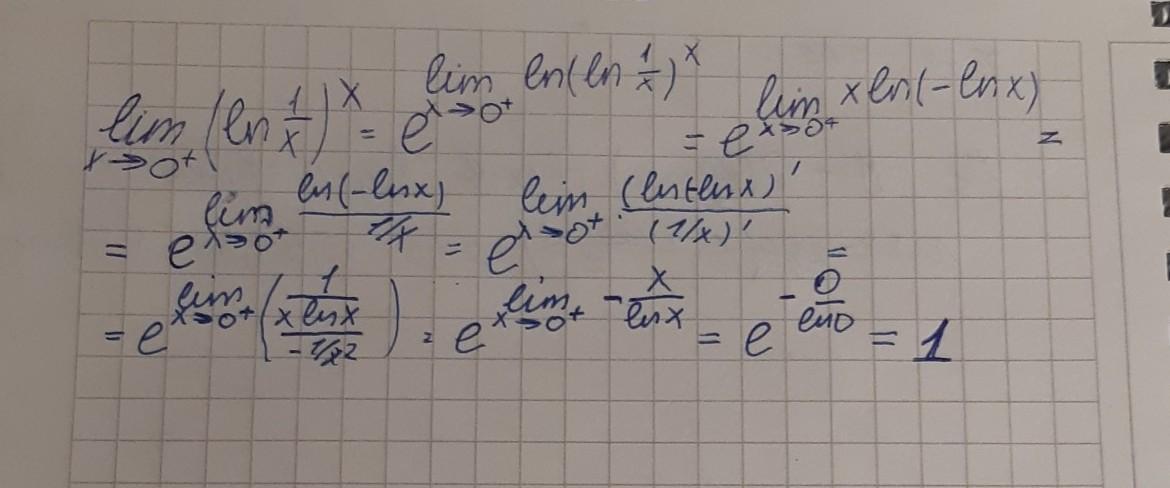 lim x→0⁺ (ln 1/x)^x = e^{lim x→0⁺ ln(ln 1/x)^x} = e^{lim x→0⁺ x ln(-ln x)} =
= e^{lim x→0⁺ ln(-ln x) / 1/x} = e^{lim x→0⁺ (ln(-ln x)' / (1/x)'} =
= e^{lim x→0⁺ (1/(x ln x) / -1/x²)} = e^{lim x→0⁺ -x/ln x} = e^{-0/ln0} = 1